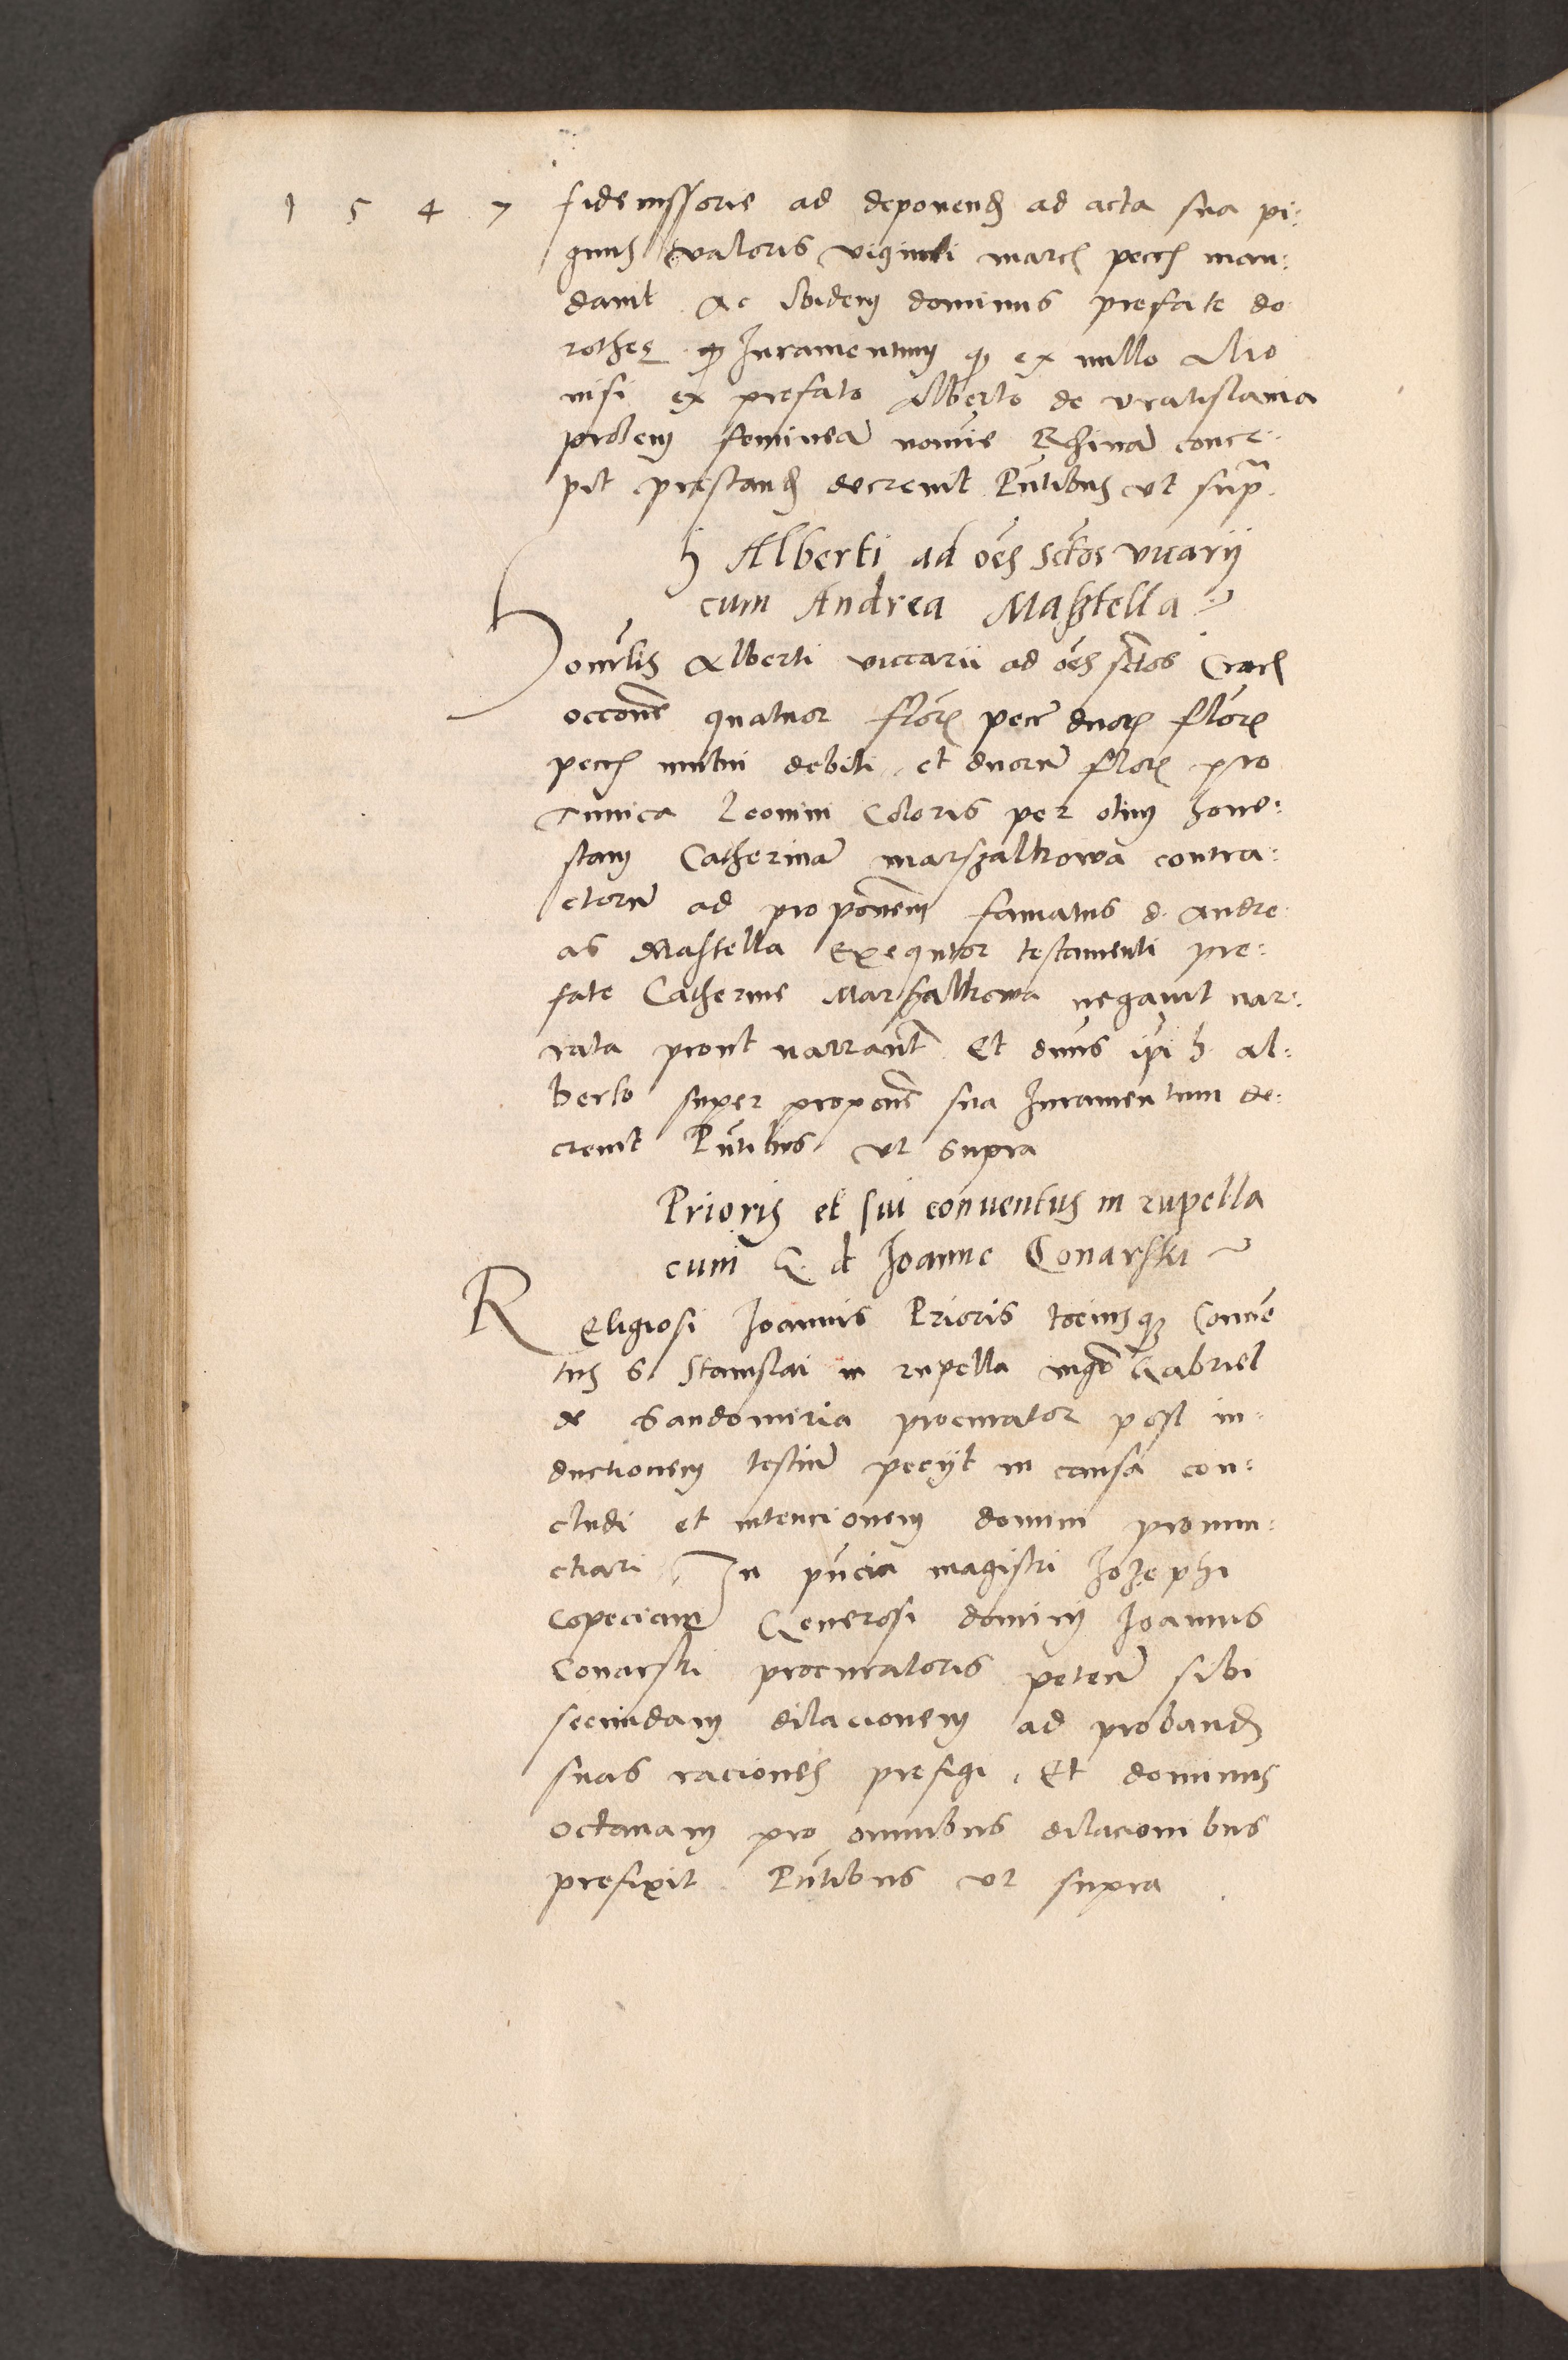 1 5 4 7 fideiussorie ad deponend ad acta sua pi:
gnus valoris viginti marc pecc man:
davit Ac ibidem dominus prefate do
rothee iuramentum ꝙ ex nullo alio
nisi ex prefato Alberto de vratislavia
prolem femineā nomīe conce:
pit prestand decrevit Pñtibus ut supa
h Alberti ad oēs sctōs vicarij
cum Andrea Mastella
Honrlis Alberti viccarii ad oēs sctōs Crac
occone quatuor flor pecc duor flor
pecc mutui debiti et duorū flor pro
tunica leonini coloris per olim hone:
stam Catherinā marszalkowa contra:
ctorū ad proponem famatus d. andre
as Mastella exequtor testamenti pre:
fate Catherine Marszalkowa negavit nar:
rata prout narrant Et dnus ipi h. al:
berto super propone sua Iuramentum de:
crevit Pñtibus ut supra
Prioris et sui conventus in rupella
cum G. d Joanne Conarski
Religiosi Joannis Prioris tociusq Convē
tus S. Stanislai in rupella mgr Gabriel
de Sandomiria procurator post in:
ductionem testiū peciit in causa con:
cludi et intencionem domini pronun:
ctiari In pñcia magistri Jozephi
Copeciam Generosi domini Joannis
Conarski procuratoris peterē sibi
secundam dilacionem ad proband
suas raciones prefigi. Et dominus
octavam pro omnibus dilacionibus
prefixit Pñtibus ut supra